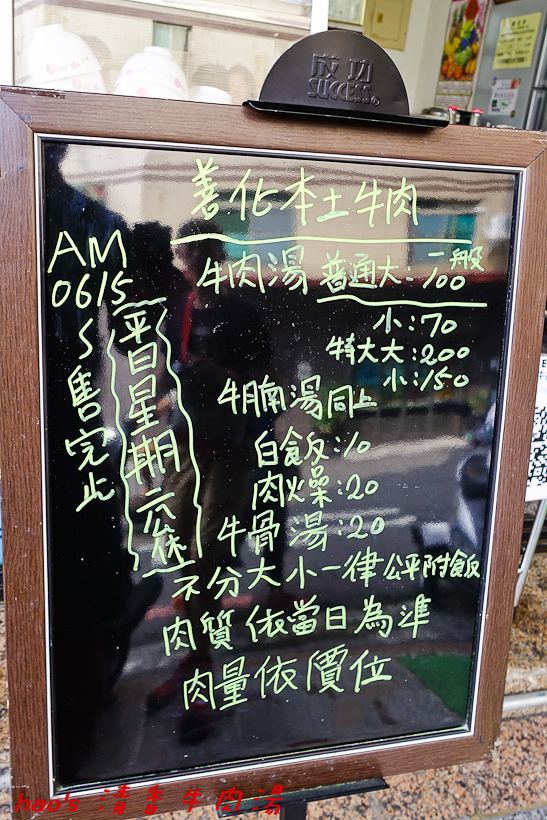 成功
SUCCESS®
善化本土牛肉
AM
0615
~
售完止
平日星期六休
牛肉湯 普通 一般
大:100
小:70
特大 大:200
小:150
牛腩湯同上
白飯:10
肉燥:20
牛骨湯:20
不分大小一律公平附飯
肉質依當日為準
肉量依價位
hao's 清香牛肉湯